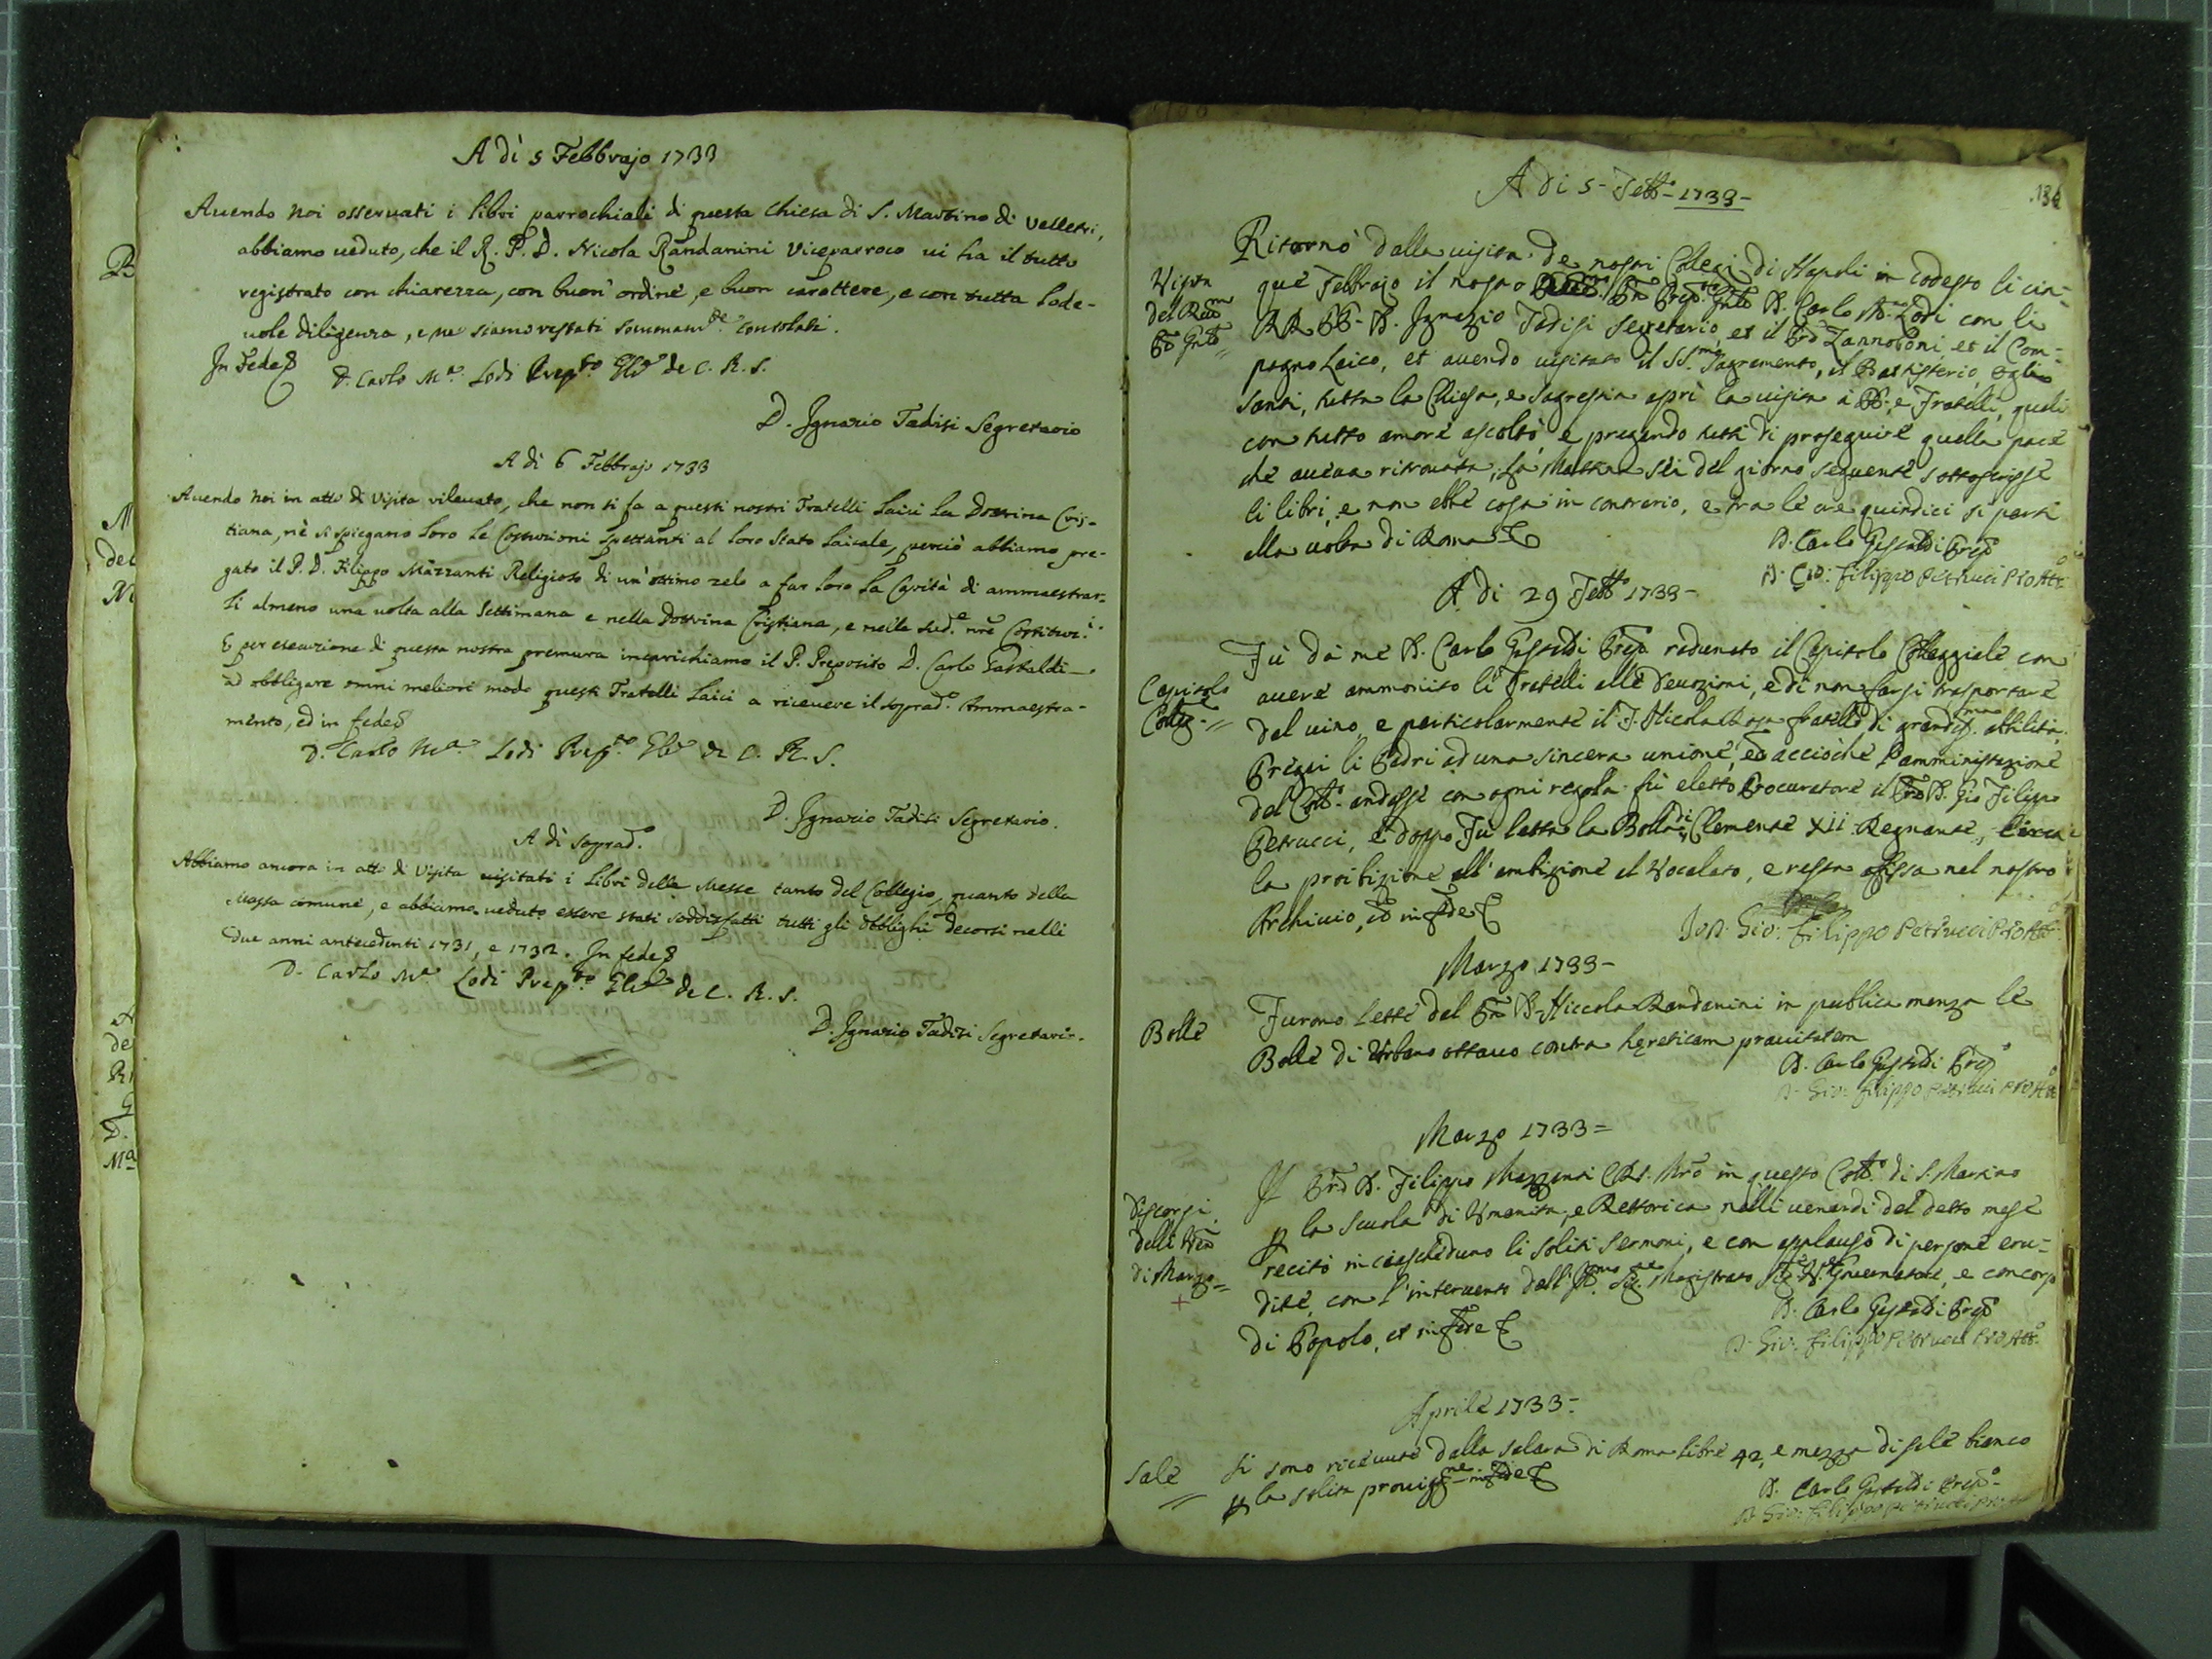 A dì 5 Febbrajo 1733
Auendo noi osseruati i libri parrochiali di questa Chiesa di S. Martino di Velletri,
abbiamo ueduto, che il R. P. D. Nicola Randanini Viceparroco ui ha il tutto
registrato con chiarezza, con buon' ordine, e buon carattere, e con tutta lode-
uole diligenza, e ne siamo restati sommam.te consolati.
In Fede
D. Carlo M.a Lodi Prep.to Gle de C. R. S.
D. Ignazio Tadisi Segretario
A dì 6 Febbrajo 1733
Auendo noi in atto di Visita rileuato, che non si fa a questi nostri Fratelli Laici la Dottrina Cris-
tiana, nè si spiegano loro le Costituzioni spettanti al loro Stato Laicale, perciò abbiamo pre-
gato il P. D. Filippo Mazzanti Religioso di un' ottimo zelo a far loro la Carità di ammaestrar-
li almeno una uolta alla Settimana e nella Dottrina Cristiana, e nelle sud.e nre Costituz.i
E per esecuzione di questa nostra premura incarichiamo il P. Preposito D. Carlo Gastaldi
ad obbligare omni meliori modo questi Fratelli Laici a riceuere il soprad.o Ammaestra-
mento, ed in fede
D. Carlo M.a Lodi Prep.to Gle de C. R. S.
D. Ignazio Tadisi Segretario.
A dì soprad.o
Abbiamo ancora in atto di Visita uisitati i Libri delle Messe tanto del Collegio, quanto della
Massa comune, e abbiamo ueduto essere stati soddisfatti tutti gli obblighi decorsi nelli
due anni antecedenti 1731, e 1732. In fede
D. Carlo M.a Lodi Prep.to Gle de C. R. S.
D. Ignazio Tadisi Segretario.
A di 5 - Febb.o - 1733 -
Ritornò dalla uisita de nostri Collegi di Napoli in codesto li cin-
Visita
del R.mo
Pre Gnle
que Febbrajo il nostro Pre Prep.to Gnle D. Carlo M.a Lodi con li
RR PP. D. Ignazio Tadisi Segretario, et il Prd Zannoboni, et il Com-
pagno Laico, et auendo uisitato il SS.mo Sagramento, il Battisterio, Oglio
Santi, tutta la Chiesa, e Sagrestia aprì la uisita à PP. e Fratelli, quali
con tutto amore ascoltò, e pregando tutti di proseguire quella pace
che aueua ritrouata, la mattina sei del giorno seguente sottoscrisse
li libri, e non ebbe cosa in contrario, e tra le ore quindici si partì
alla uolta di Roma
D. Carlo Gastaldi Prep.o
D. Gio: Filippo Petrucci Pro Att.o
A di 29 Febb.o 1733 -
Fù da me D. Carlo Gastaldi Prep.o radunato il Capitolo Colleggiale con
Capitolo
Colleg.le
auere ammonito li Fratelli alle deuozioni, e di non farsi trasportare
dal uino, e particolarmente il F. Nicola Rosa fratello di grandis.ma abilità.
Pregai li Padri ad una sincera unione, ed acciòche l'amministrazione
del Coll.o andasse con ogni regola fù eletto Procuratore il Prd D. Gio Filippo
Petrucci, e doppo Fù letta la Bolla di Clemente XII Regnante, circa
la proibizione all' ambizione al Vocalato, e resta affissa nel nostro
Archiuio, ed in fede
Io D. Gio: Filippo Petrucci Pro Att.o
Marzo 1733 -
Furono lette dal Prd D. Niccola Randanini in publica menza le
Bolle
Bolle di Urbano ottauo contra hereticam prauitatem
D. Carlo Gastaldi Prep.o
D. Gio: Filippo Petrucci Pro Att.o
Marzo 1733 =
Il Prd D. Filippo Mazzanti CRS. Mrõ in questo Coll.o di S. Martino
Discorsi
delli Ven.i
di Marzo
p la Scuola di Umanita, e Rettorica nelli uenardi del detto mese
recitò in ciascheduno li soliti Sermoni, e con applauso di persone eru-
dite, con l'interuento dell' Ill.mo Magistrato Gouernatore, e concorso
di Popolo, et in fede
D. Carlo Gastaldi Prep.o
D. Gio: Filippo Petrucci Pro Att.o
Aprile 1733 -
Sale
Si sono riceuute dalla salara di Roma libre 42, e mezza di sale bianco
p la solita prouis.ne in fede
D. Carlo Gastaldi Prep.o
D. Gio: Filippo Petrucci Pro Att.o